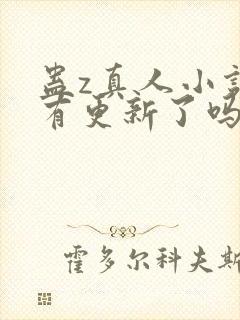 蛊z真人小
有更新了吗
霍多尔科夫斯